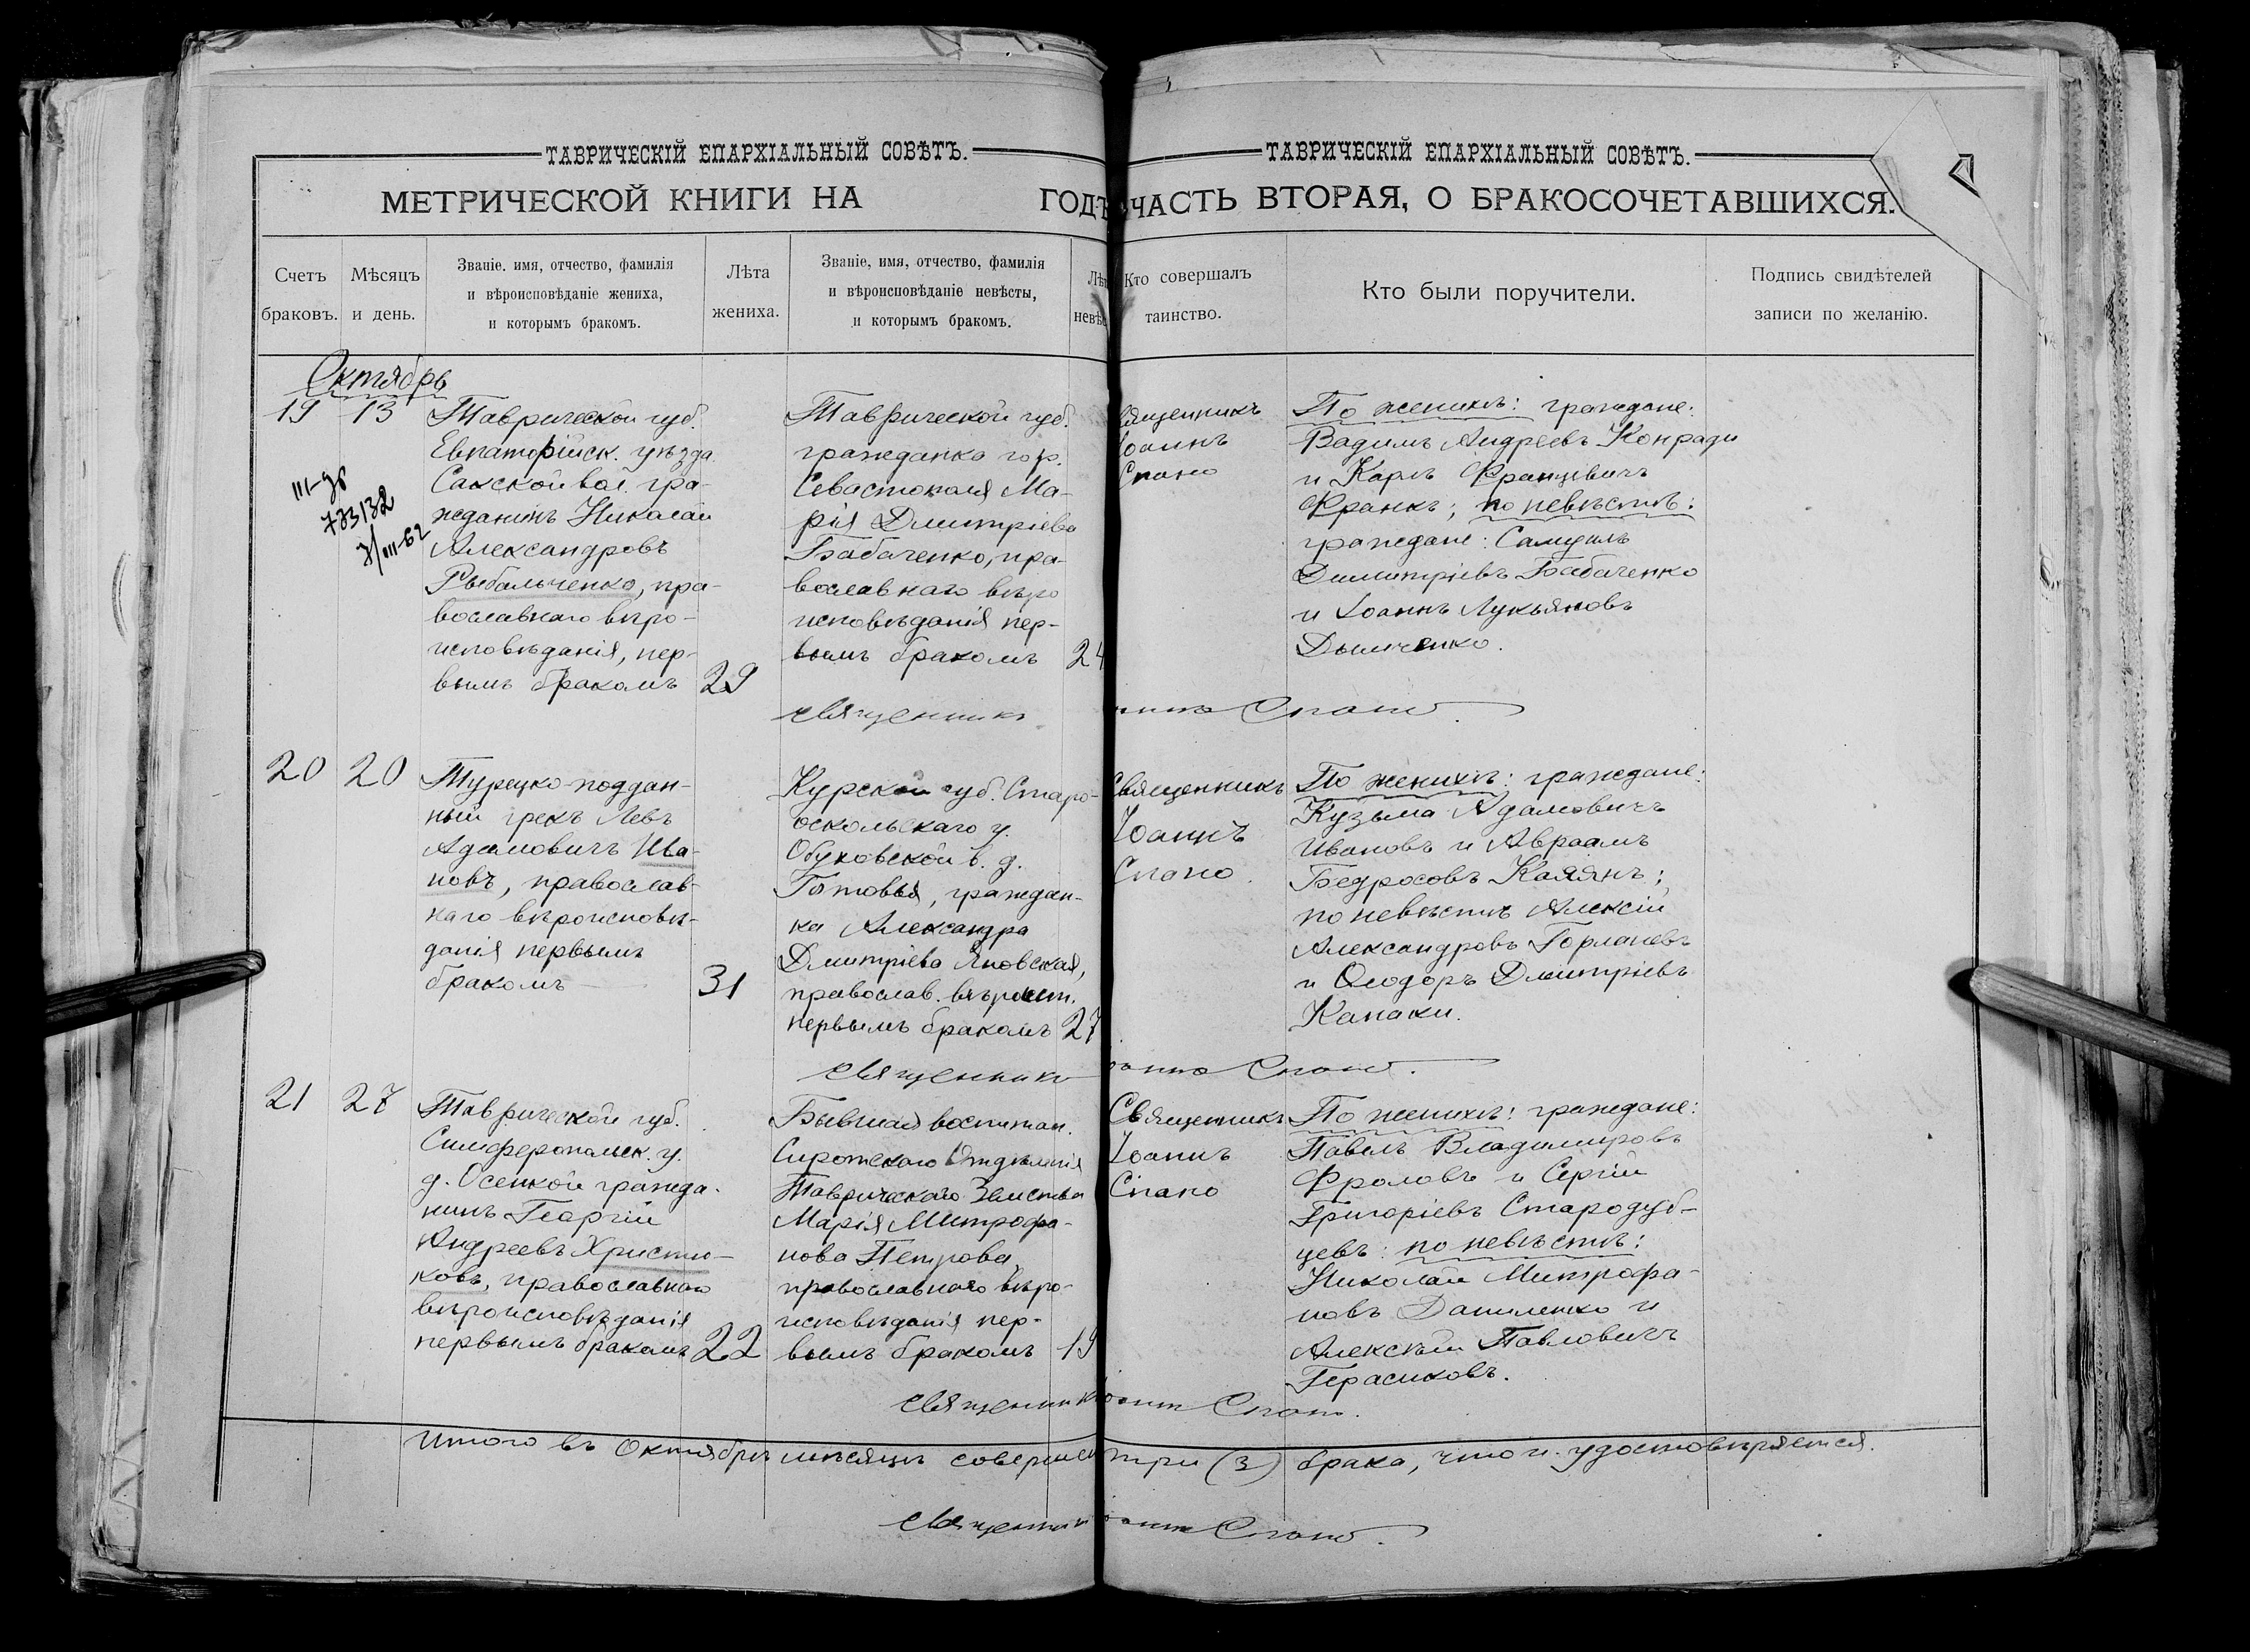 ТАВРИЧЕСКІЙ ЕПАРХІАЛЬНЫЙ СОВѢТЪ.
МЕТРИЧЕСКОЙ КНИГИ НА ГОДЪ
Счетъ
браковъ.
Мѣсяцъ
и день.
Званіе, имя, отчество, фамилія
и вѣроисповѣданіе жениха,
и которымъ бракомъ.
Лѣта
жениха.
Званіе, имя, отчество, фамилія
и вѣроисповѣданіе невѣсты,
и которымъ бракомъ.
Лѣт
невѣс
ТАВРИЧЕСКІЙ ЕПАРХІАЛЬНЫЙ СОВѢТЪ.
ЧАСТЬ ВТОРАЯ, О БРАКОСОЧЕТАВШИХСЯ.
Кто совершалъ
таинство.
Кто были поручители.
Подпись свидѣтелей
записи по желанію.
Октябрь
19
13
Таврической губ.
Евпаторійск. уѣзда
Сакской вол. гра-
жданинъ Николай
Александровъ
Рыбальченко, пра-
вославнаго вѣро-
исповѣданія, пер-
вымъ бракомъ
29
Таврической губ.
гражданка гор.
Севастополя Ма-
рія Дмитріева
Бабаченко, пра-
вославнаго вѣро
исповѣданія пер-
вымъ бракомъ
24
вященникъ
Іоаннъ
Спано
По женихѣ: граждане:
Вадимъ Андреевъ Конради
и Карлъ Францевичъ
Франкъ; по невѣстѣ:
граждане: Самуилъ
Димитріевъ Бабаченко
и Іоаннъ Лукьяновъ
Дымченко.
священникъ
аннъ Спано.
20
20
Турецко-поддан-
ный грекъ Левъ
Адамовичъ Ива-
новъ, православ-
наго вѣроисповѣ-
данія первымъ
бракомъ
31
Курской губ. Старо-
оскольскаго у.
Обуховской в. д.
Готовья, граждан-
ка Александра
Дмитріева Яновская,
православ. вѣроисп.
первымъ бракомъ
27
Священникъ
Іоаннъ
Спано.
По женихѣ: граждане:
Кузьма Адамовичъ
Ивановъ и Авраамъ
Бедросовъ Калянъ;
по невѣстѣ Алексій
Александровъ Горлачевъ
и Ѳеодоръ Дмитріевъ
Капаки.
священникъ
оаннъ Спано.
21
27
Таврической губ.
Симферопольск. у.
д. Осенкой гражда-
нинъ Георгій
Андреевъ Христю-
ковъ, православнаго
вѣроисповѣданія
первымъ бракомъ
22
Бывшая воспитан.
Сиротскаго Отдѣленія
Таврическаго Земства
Марія Митрофа-
нова Петрова,
православнаго вѣро-
исповѣданія пер-
вымъ бракомъ
19
Священникъ
Іоаннъ
Спано
По женихѣ: граждане:
Павелъ Владимировъ
Фроловъ и Сергій
Григоріевъ Стародуб-
цевъ: по невѣстѣ:
Николай Митрофа-
новъ Даниленко и
Алексѣй Павловичъ
Герасиковъ.
священникъ
оаннъ Спано.
Итого въ Октябрѣ мѣсяцѣ совершен три (3) брака, что и удостовѣряется.
священник
оаннъ Спано.